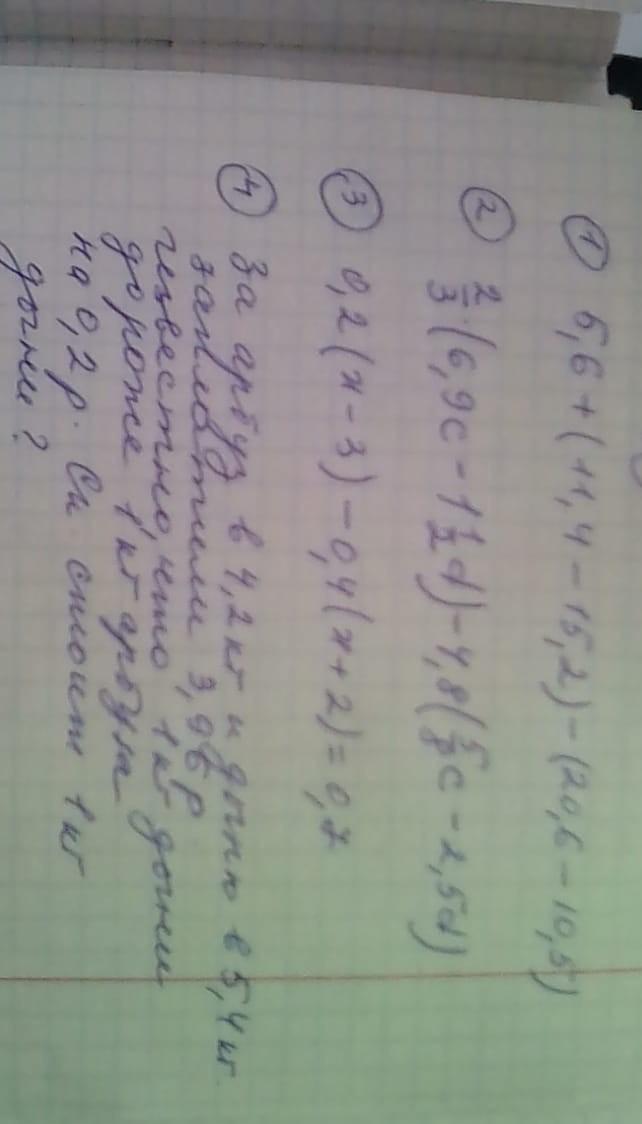 ① 5,6+(11,4-15,2)-(20,6-10,5)
② 2/3·(6,9c-1 1/2 d)-4,8(5/8 c-2,5d)
③ 0,2(x-3)-0,4(x+2)=0,7
④ За арбуз в 4,2 кг и дыню в 5,4 кг.
заплатили 3,96 р
известно, что 1 кг дыни
дороже 1 кг арбуза
на 0,2 р. Ск стоит 1 кг
дыни?